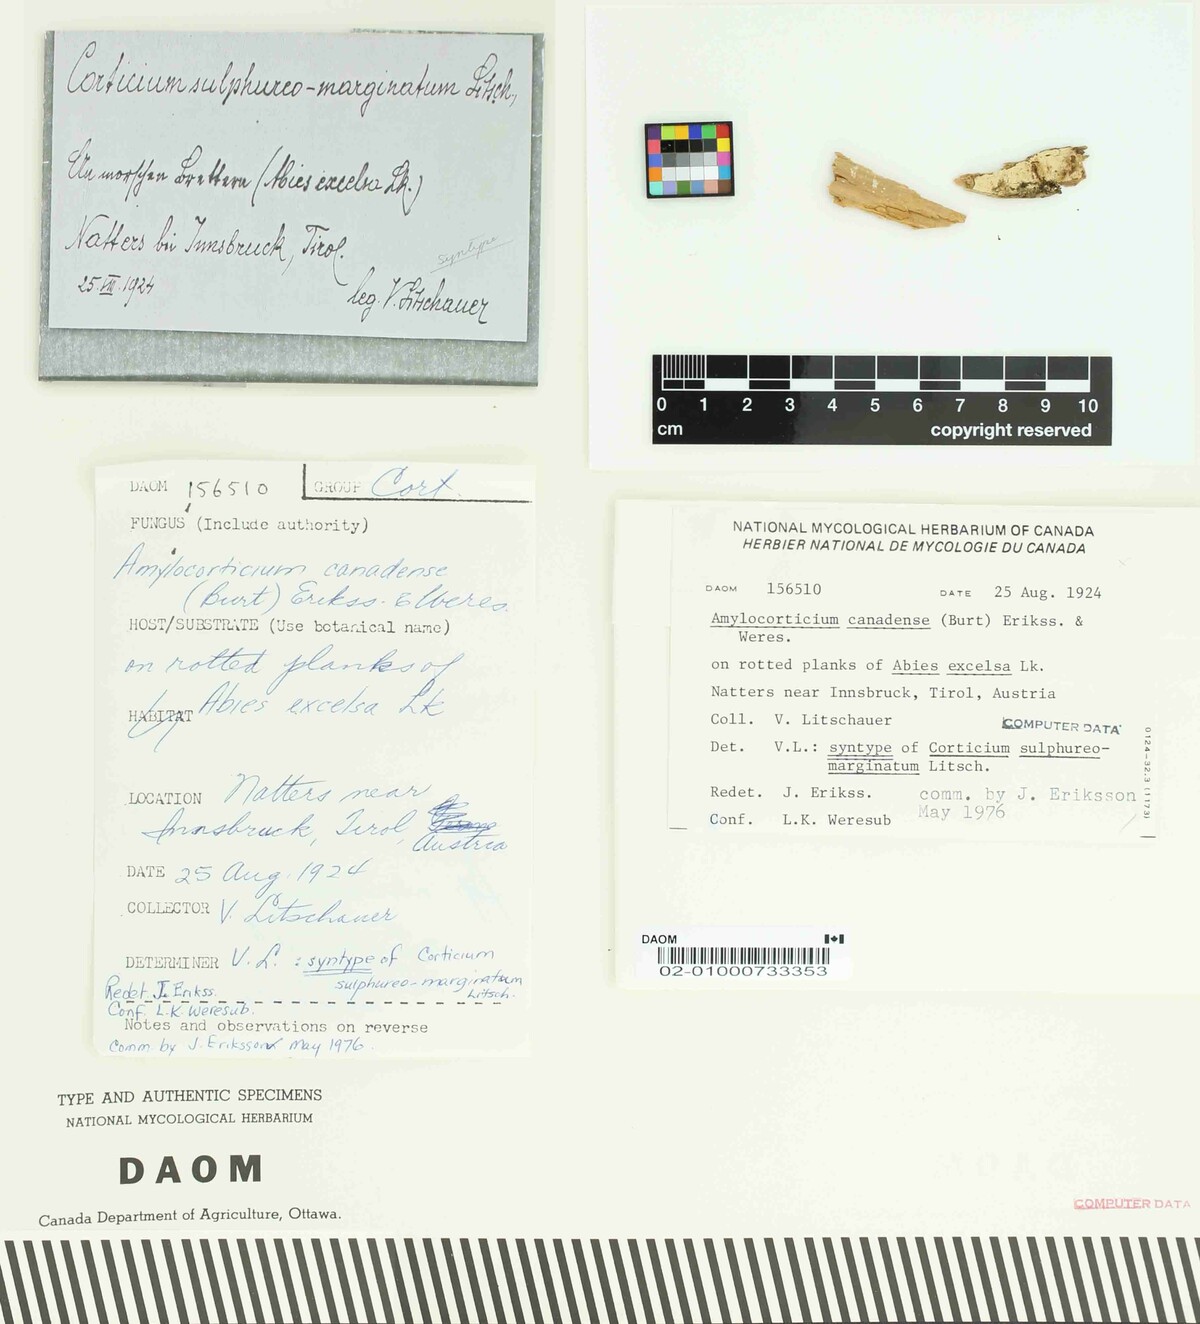 Corticium sulphureo-marginatum Litsch,
An morschen Brettern (Abies excelsa Lk.)
Natters bei Innsbruck, Tirol.
syntype
25.VIII.1924
leg. V. Litschauer
0 1 2 3 4 5 6 7 8 9 10
cm copyright reserved
DAOM 156510 GROUP Cort.
FUNGUS (Include authority)
Amylocorticium canadense
(Burt) Erikss. & Weres.
HOST/SUBSTRATE (Use botanical name)
on rotted planks of
HABITAT Abies excelsa Lk
LOCATION Natters near
Innsbruck, Tirol,
Austria
DATE 25 Aug. 1924
COLLECTOR V. Litschauer
DETERMINER V. L. : syntype of Corticium
sulphureo-marginatum
Litsch.
Redet. J. Erikss.
Conf. L.K. Weresub.
Notes and observations on reverse
Comm. by J. Eriksson May 1976.
NATIONAL MYCOLOGICAL HERBARIUM OF CANADA
HERBIER NATIONAL DE MYCOLOGIE DU CANADA
DAOM 156510 DATE 25 Aug. 1924
Amylocorticium canadense (Burt) Erikss. &
Weres.
on rotted planks of Abies excelsa Lk.
Natters near Innsbruck, Tirol, Austria
Coll. V. Litschauer
COMPUTER DATA
Det. V.L.: syntype of Corticium sulphureo-
marginatum Litsch.
Redet. J. Erikss.
comm. by J. Eriksson
May 1976
Conf. L.K. Weresub
0124-32.3 (11/73)
DAOM
02-01000733353
TYPE AND AUTHENTIC SPECIMENS
NATIONAL MYCOLOGICAL HERBARIUM
DAOM
Canada Department of Agriculture, Ottawa.
COMPUTER DATA